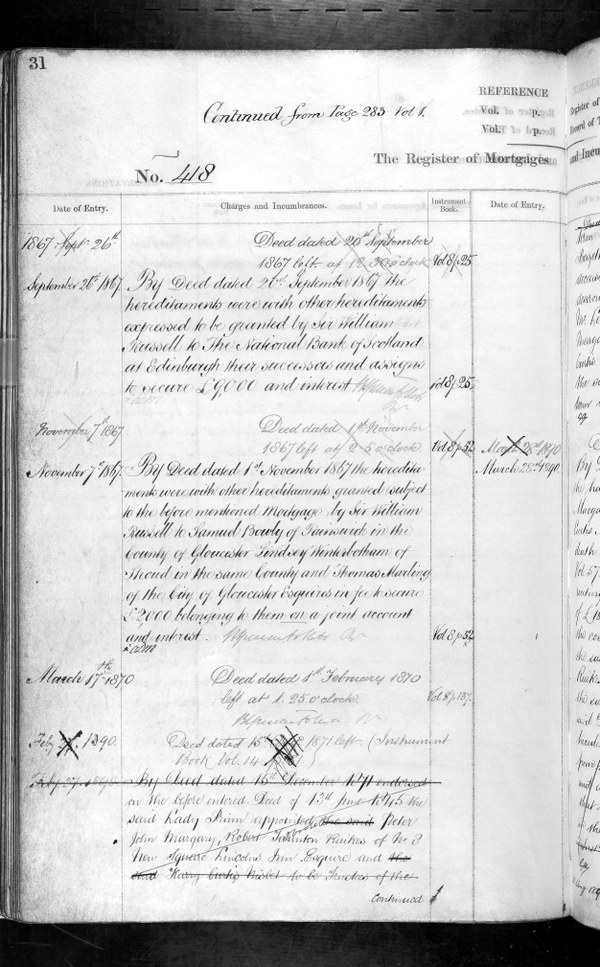 31
REFERENCE
Continued from Page 283 Vol 1.
Vol. p.
Vol. p.
The Register of Mortgages
No. 418
Date of Entry.
Charges and Incumbrances.
Instrument Book.
Date of Entry.
1867 Sept 26th
Deed dated 20th September
1867 left at 12 o'clock
Vol 8 p 25
September 26th 1867
By Deed dated 20th September 1867 the
hereditaments were with other hereditaments
expressed to be granted by Sir William
Russell to The National Bank of Scotland
at Edinburgh their successors and assigns
to secure £9,000 and interest
Vol 8 p 25.
November 7th 1867
Deed dated 1st November
1867 left at 2·5 o'clock
Vol 8 p 52
March 28th 1890
November 7th 1867
March 28th 1890
By Deed dated 1st November 1867 the heredita-
ments were with other hereditaments granted (subject
to the before mentioned Mortgage) by Sir William
Russell to Samuel Bowly of Painswick in the
County of Gloucester Lindsey Winterbotham of
Stroud in the same County and Thomas Marling
of the City of Gloucester Esquires in fee to secure
£2000 belonging to them on a joint account
and interest.
Vol 8 p 52
March 17th 1870
Deed dated 1st February 1870
left at 1.25 o'clock.
Vol 8 p 137.
Feby 1890.
Deed dated 15th 1871 left (Instrument
Book Vol. 14 )
Feby 27 1890
By Deed dated 15th December 1871 endorsed
on the before entered Deed of 13th June 1845 the
said Lady Prinn appointed the said Peter
John Margary, Robert Taunton Raikes of No 8
New Square Lincolns Inn Esquire and the
said Harry Curtis Nisbet to be Trustees of the
Continued